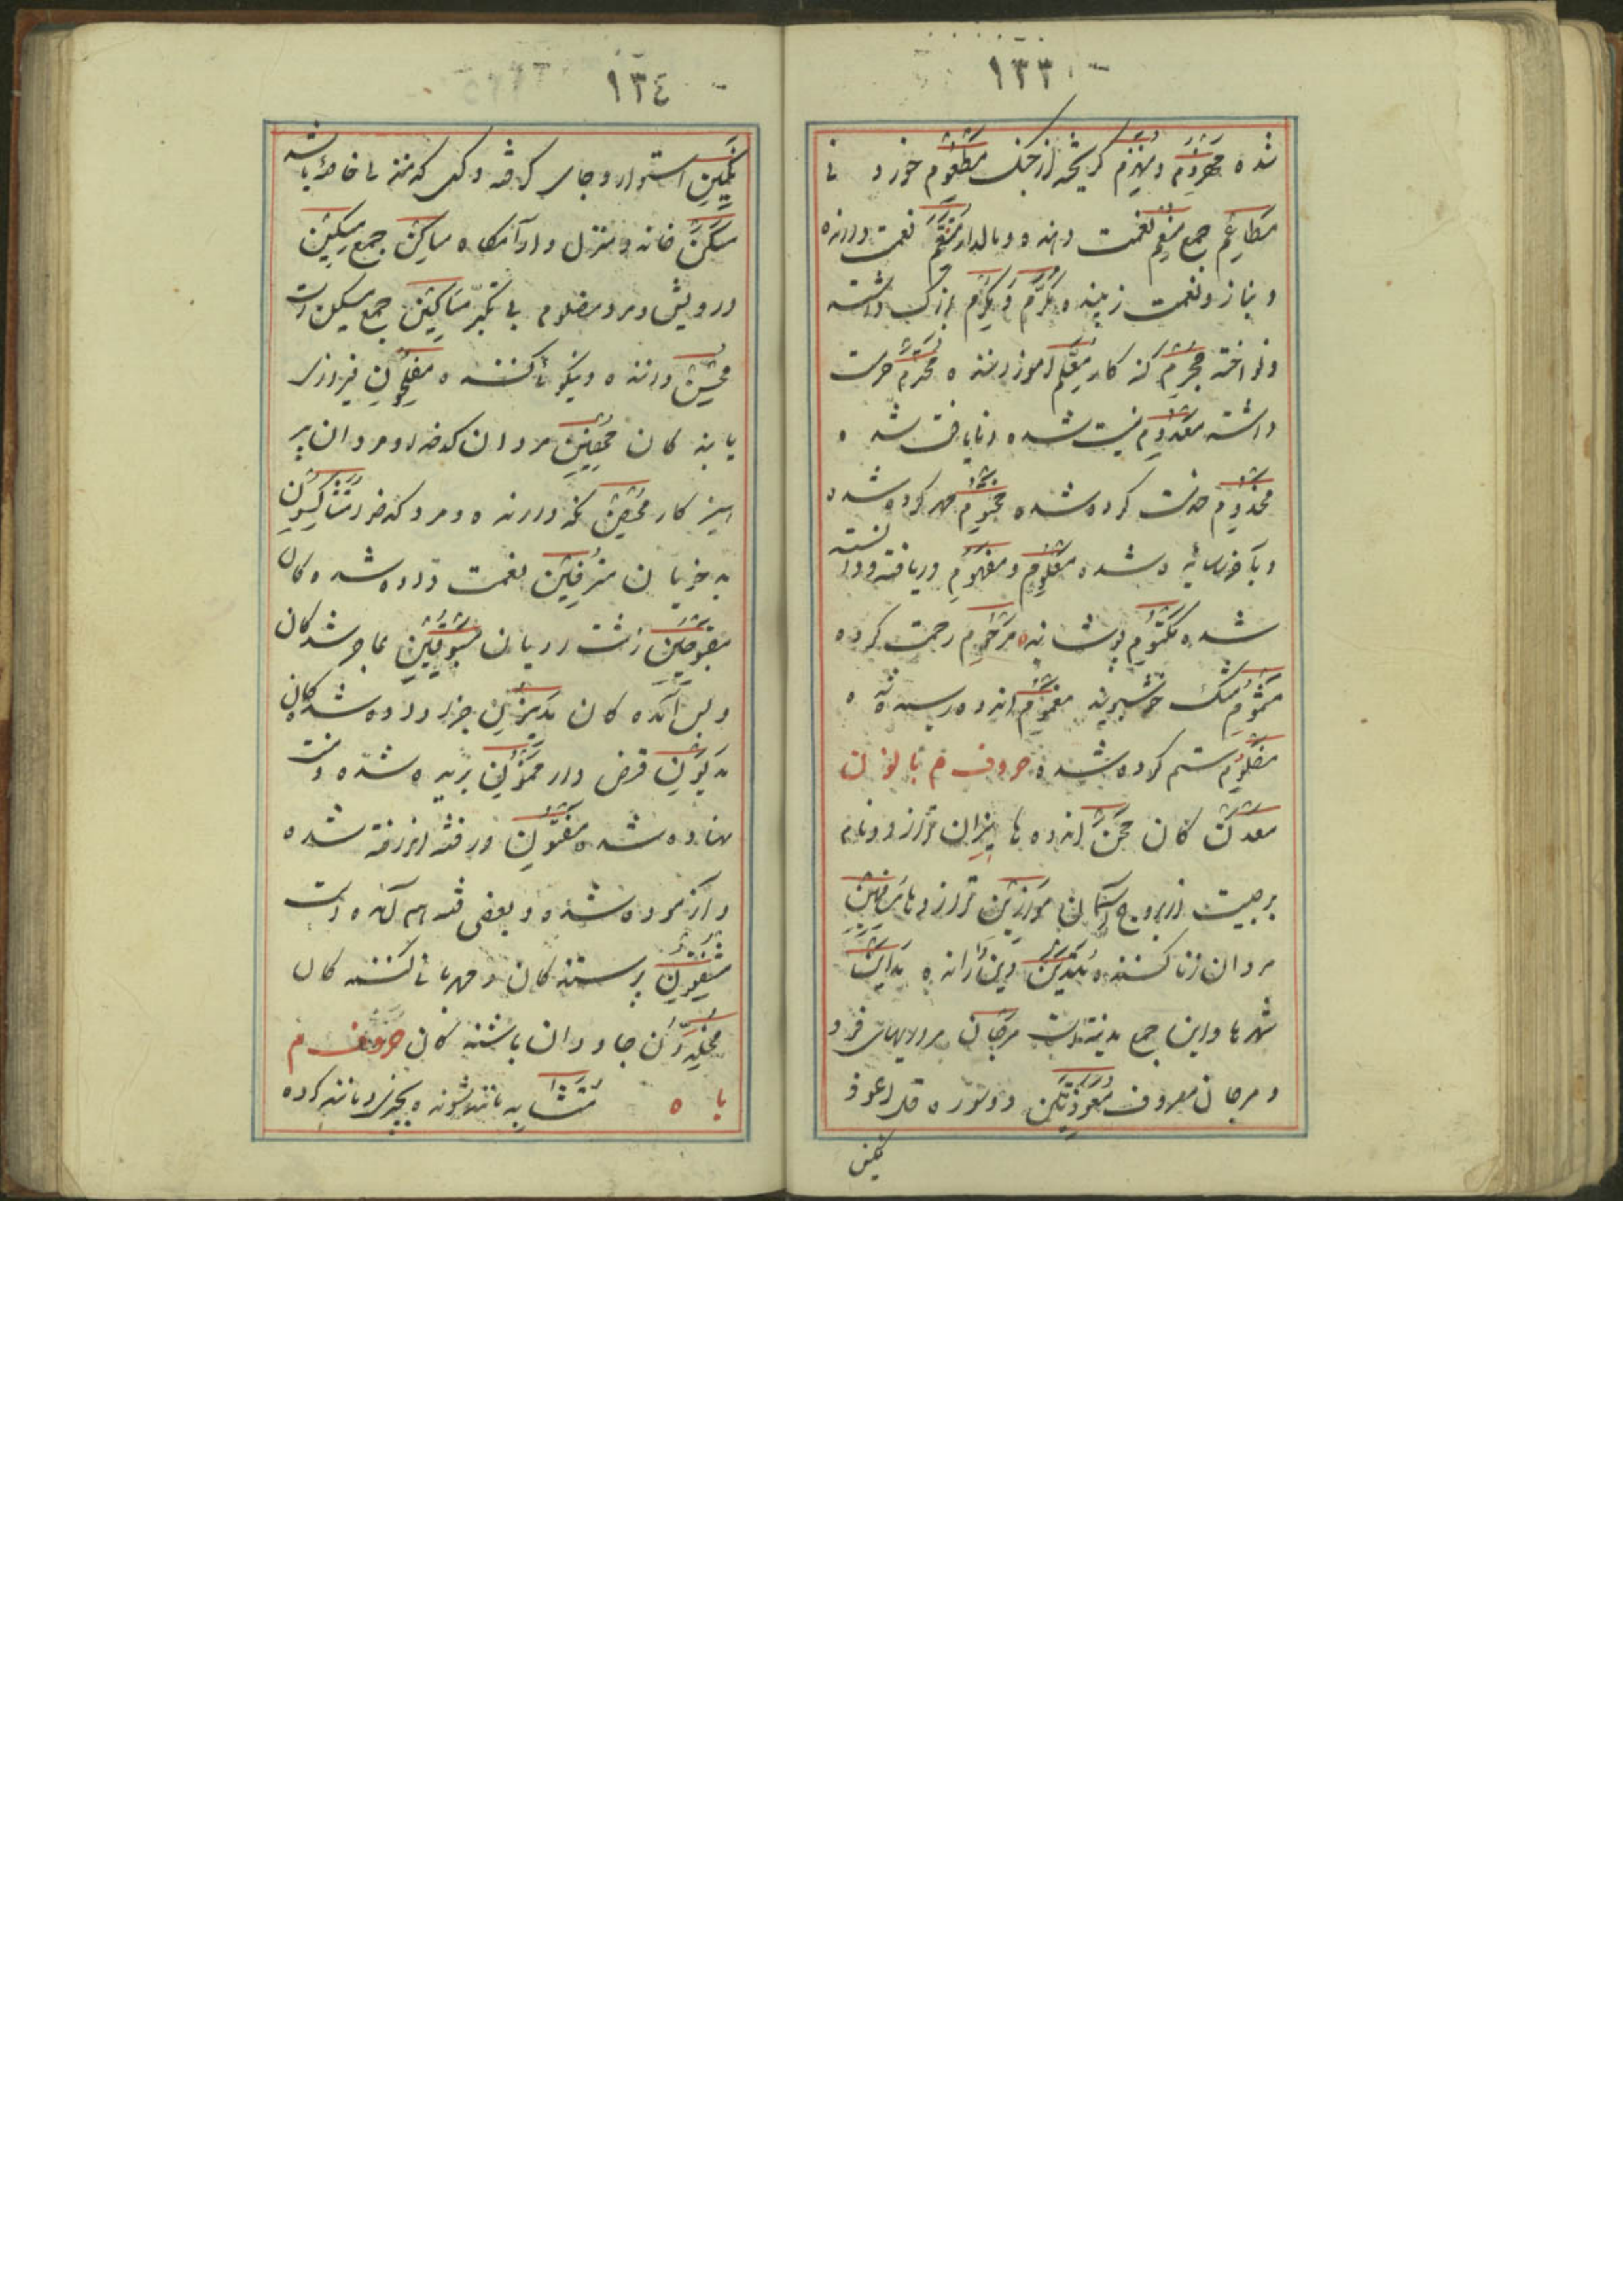 ١٣٣
شده مهزوم و منهزم کریخته از جنک مطعوم خورد نی
مطاعم جمع منعم نعمت دهنده و مالدار متنعم نعمت دارنده
و بناز و نعمت زینده مکرم و مکرّم بزرک داشته
و نواخته مجرم کنه کار معلم اموزنده محرم حرمت
داشته معدوم نیست شده و نایافت شده
مخدوم خدمت کرده شده مختوم مهر کرده شده
و باخر رسانیده شده معلوم و مفهوم دریافته و دانسته
شده مکتوم پوشانیده مرحوم رحمت کرده
مشموم مشک خوشبوینه مغموم اندوه رسیده
مظلوم ستم کرده شده حروف م با نون
معدن کان محن اندوه ها میزان ترازو و نام
برجیست از بروج آسمان موازین ترازو ها
مردان زنا کننده متدین دین دارنده مداین
شهر ها و این جمع مدینه است مرجان مرواریدهای خورد
و مرجان معروف معوذتین دو سوره قل اعوذ
مکین
١٣٤
مکین استوار و جای کرفته و کسی که منزلی خاصه باشد
مسکن خانه و منزل و ارآمکاه مساکن جمع مسکین
درویش و مرد مظلوم بی تکبر مساکین جمع مسکین است
محسن داننده و نیکوئی کننده مفلحون فیروزی
یابنده کان محصنین مردان کدخدا و مردان پر
هیز کار محصن نکه دارنده و مرد کدخدا متشاکسون
بدخویان مترفین نعمت داده شده کان
مقبوحین زشت رویان مسبوقین عاجز شدکان
و پس آمده کان مدینین جزا داده شدکان
مدیون قرض دار ممنون بریده شده و منت
نهاده شده مفتون در فتنه انداخته شده
و آزموده شده و بعضی فتنه هم آمده است
مشفقون پرستنده کان و مهربانی کننده کان
مخلدون جاودان باشنده کان حروف م
با ه متشابه مانند شونده بچیزی و مانند کرده